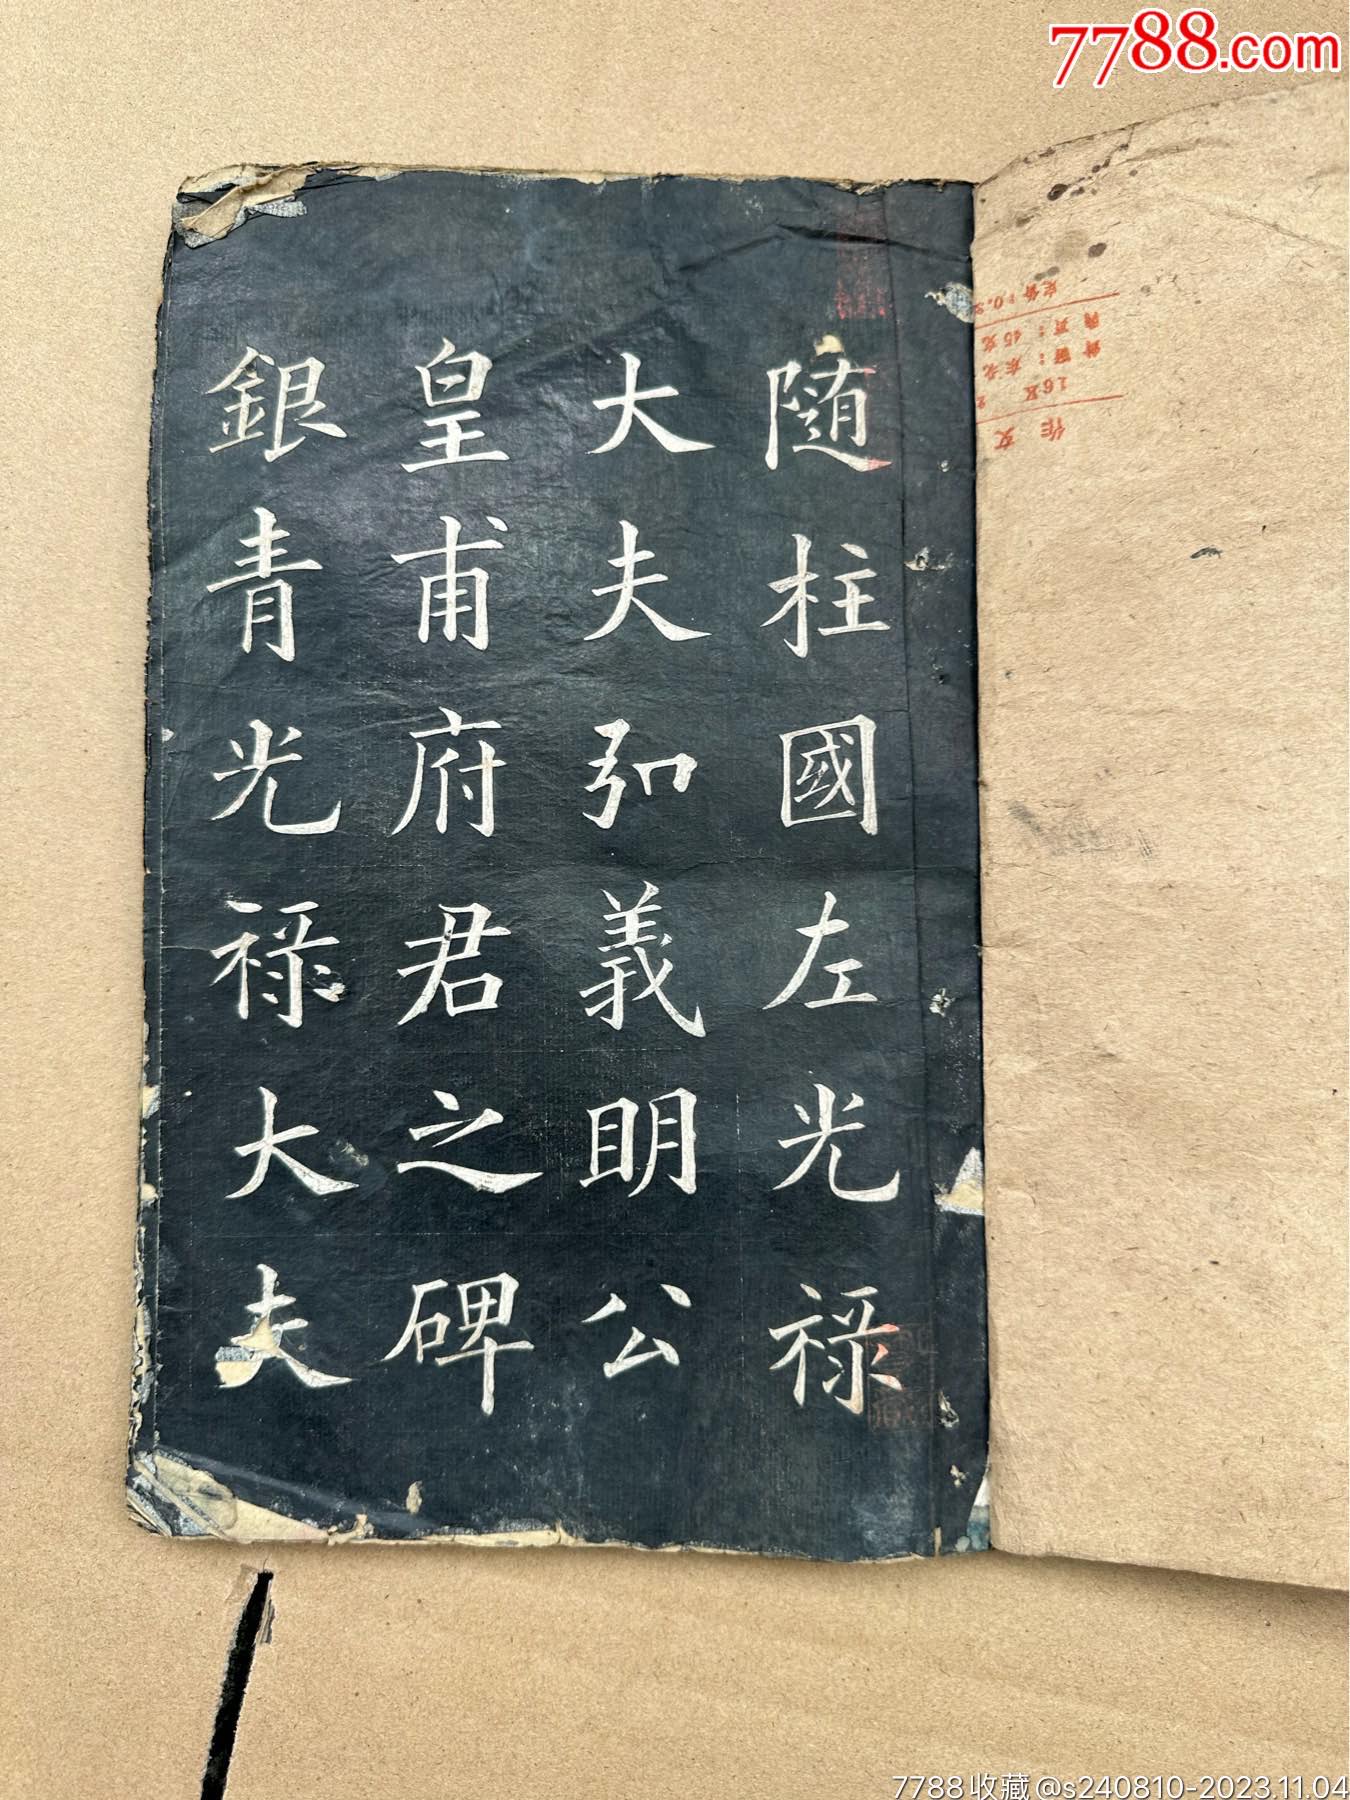 7788.com
隨柱國左光祿
大夫弘義明公
皇甫府君之碑
銀青光祿大夫
作文
16又
定价:0.2
7788收藏@s240810-2023.11.04